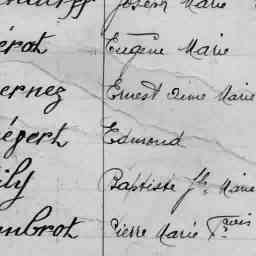 Joseph Marie
érot Eugène Marie
ernez Ernest Aimé Marie
égert Edmond
ily Baptiste Marie
mbrot Pierre Marie